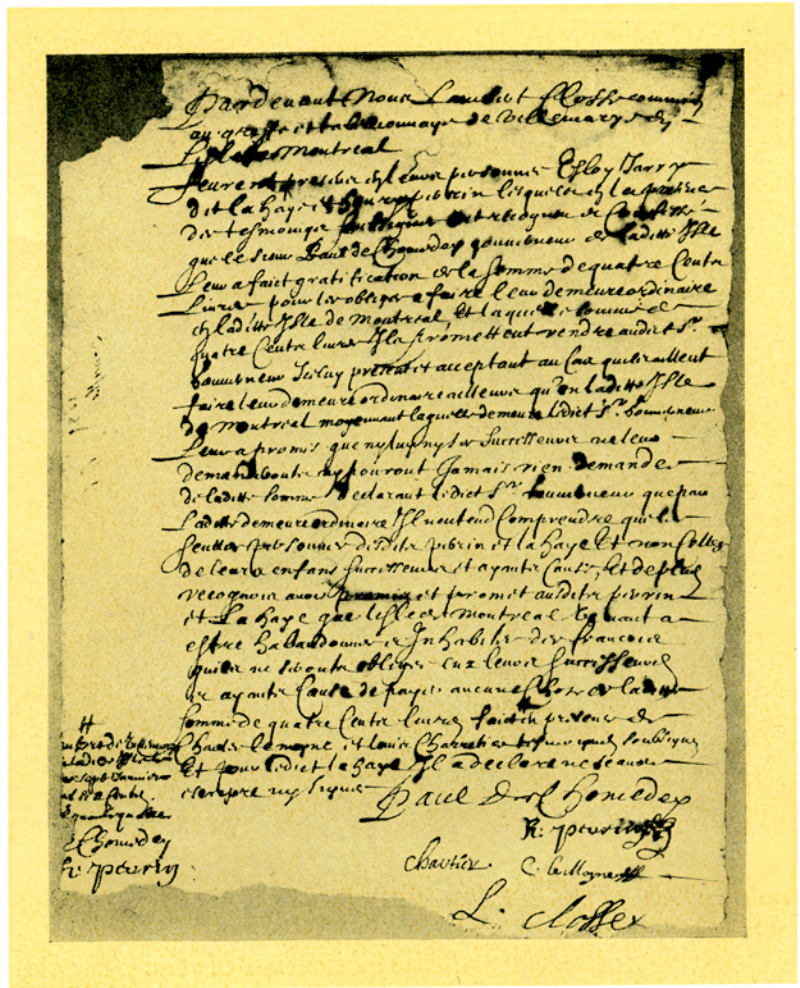 Pardevant Nous Lambert Closse commis
au greffe et tabellionnage de Villemarye en
L'Isle de Montreal
feurent presens en leurs personnes Esloy Jarry
dit la haye et henry perrin lesquels en la presence
des tesmoings soubsignez ont recogneu et Confessé
que le sieur Paul de Chomedey gouverneur de ladite Isle
Leur a faict gratification de la somme de quatre Cents
Livres pour les obliger a faire leur demeure ordinaire
en ladite Isle de Montreal, Et laquelle somme de
quatre Cents livres Ils promettent rendre audict Sr.
Gouverneur Iceluy present et acceptant au Cas quils aillent
faire leur demeure ordinaire ailleurs qu'en ladite Isle
de Montreal moyennant laquelle demeure ledict Sr. Gouverneur
Leur a promis que ny luy ny ses Successeurs ne leur
demanderont ny pouront Jamais rien demander
de ladite somme declarant ledict Sr. Gouverneur que par
Ladite demeure ordinaire Il n'entend Comprendre que les
seulles personnes desdits perrin et la haye Et non Celles
de leurs enfans successeurs et ayants Cause, Et de plus
recognoit avoir promis et promet ausdits perrin
et La haye que lisle de Montreal venant a
estre habandonnee et Inhabitee des francois
quils ne seronts obligez eux leurs successeurs
et ayants Cause de payer aucune Chose de ladite
somme de quatre Cents livres faict en presence de
Charles le moyne et louis Chartier tesmoings soubsignez
Et pour ledict la haye Il a declaré ne scavoir
escrire ny signer
Paul de Chomedey
h. perrin
Chartier C. le Moyne
L. Closse
de Chomedey
h. perrin